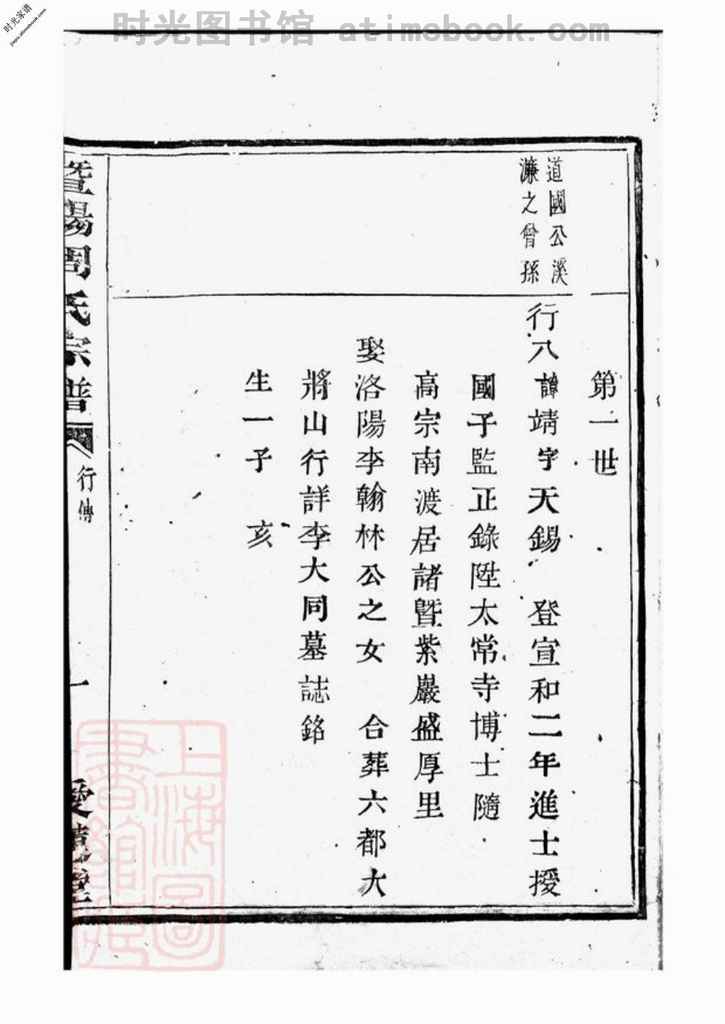 时光图书馆 atimsbook.com
时光家谱
道國公溪
濂之曾孫
第一世
行八諱靖字天錫 登宣和二年進士授
國子監正錄陞太常寺博士隨
高宗南渡居諸暨紫巖盛厚里
娶洛陽李翰林公之女 合葬六都大
將山行詳李大同墓誌銘
生一子 亥
暨陽周氏宗譜
行傳
一
上海圖書館藏